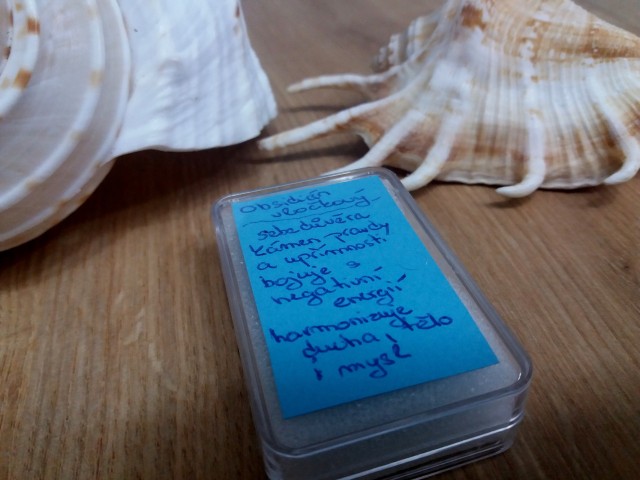 Obsidián
vločkový
sebedůvěra
kámen pravdy
a upřímnosti
bojuje s
negativní
energií
harmonizuje
ducha, tělo
i mysl